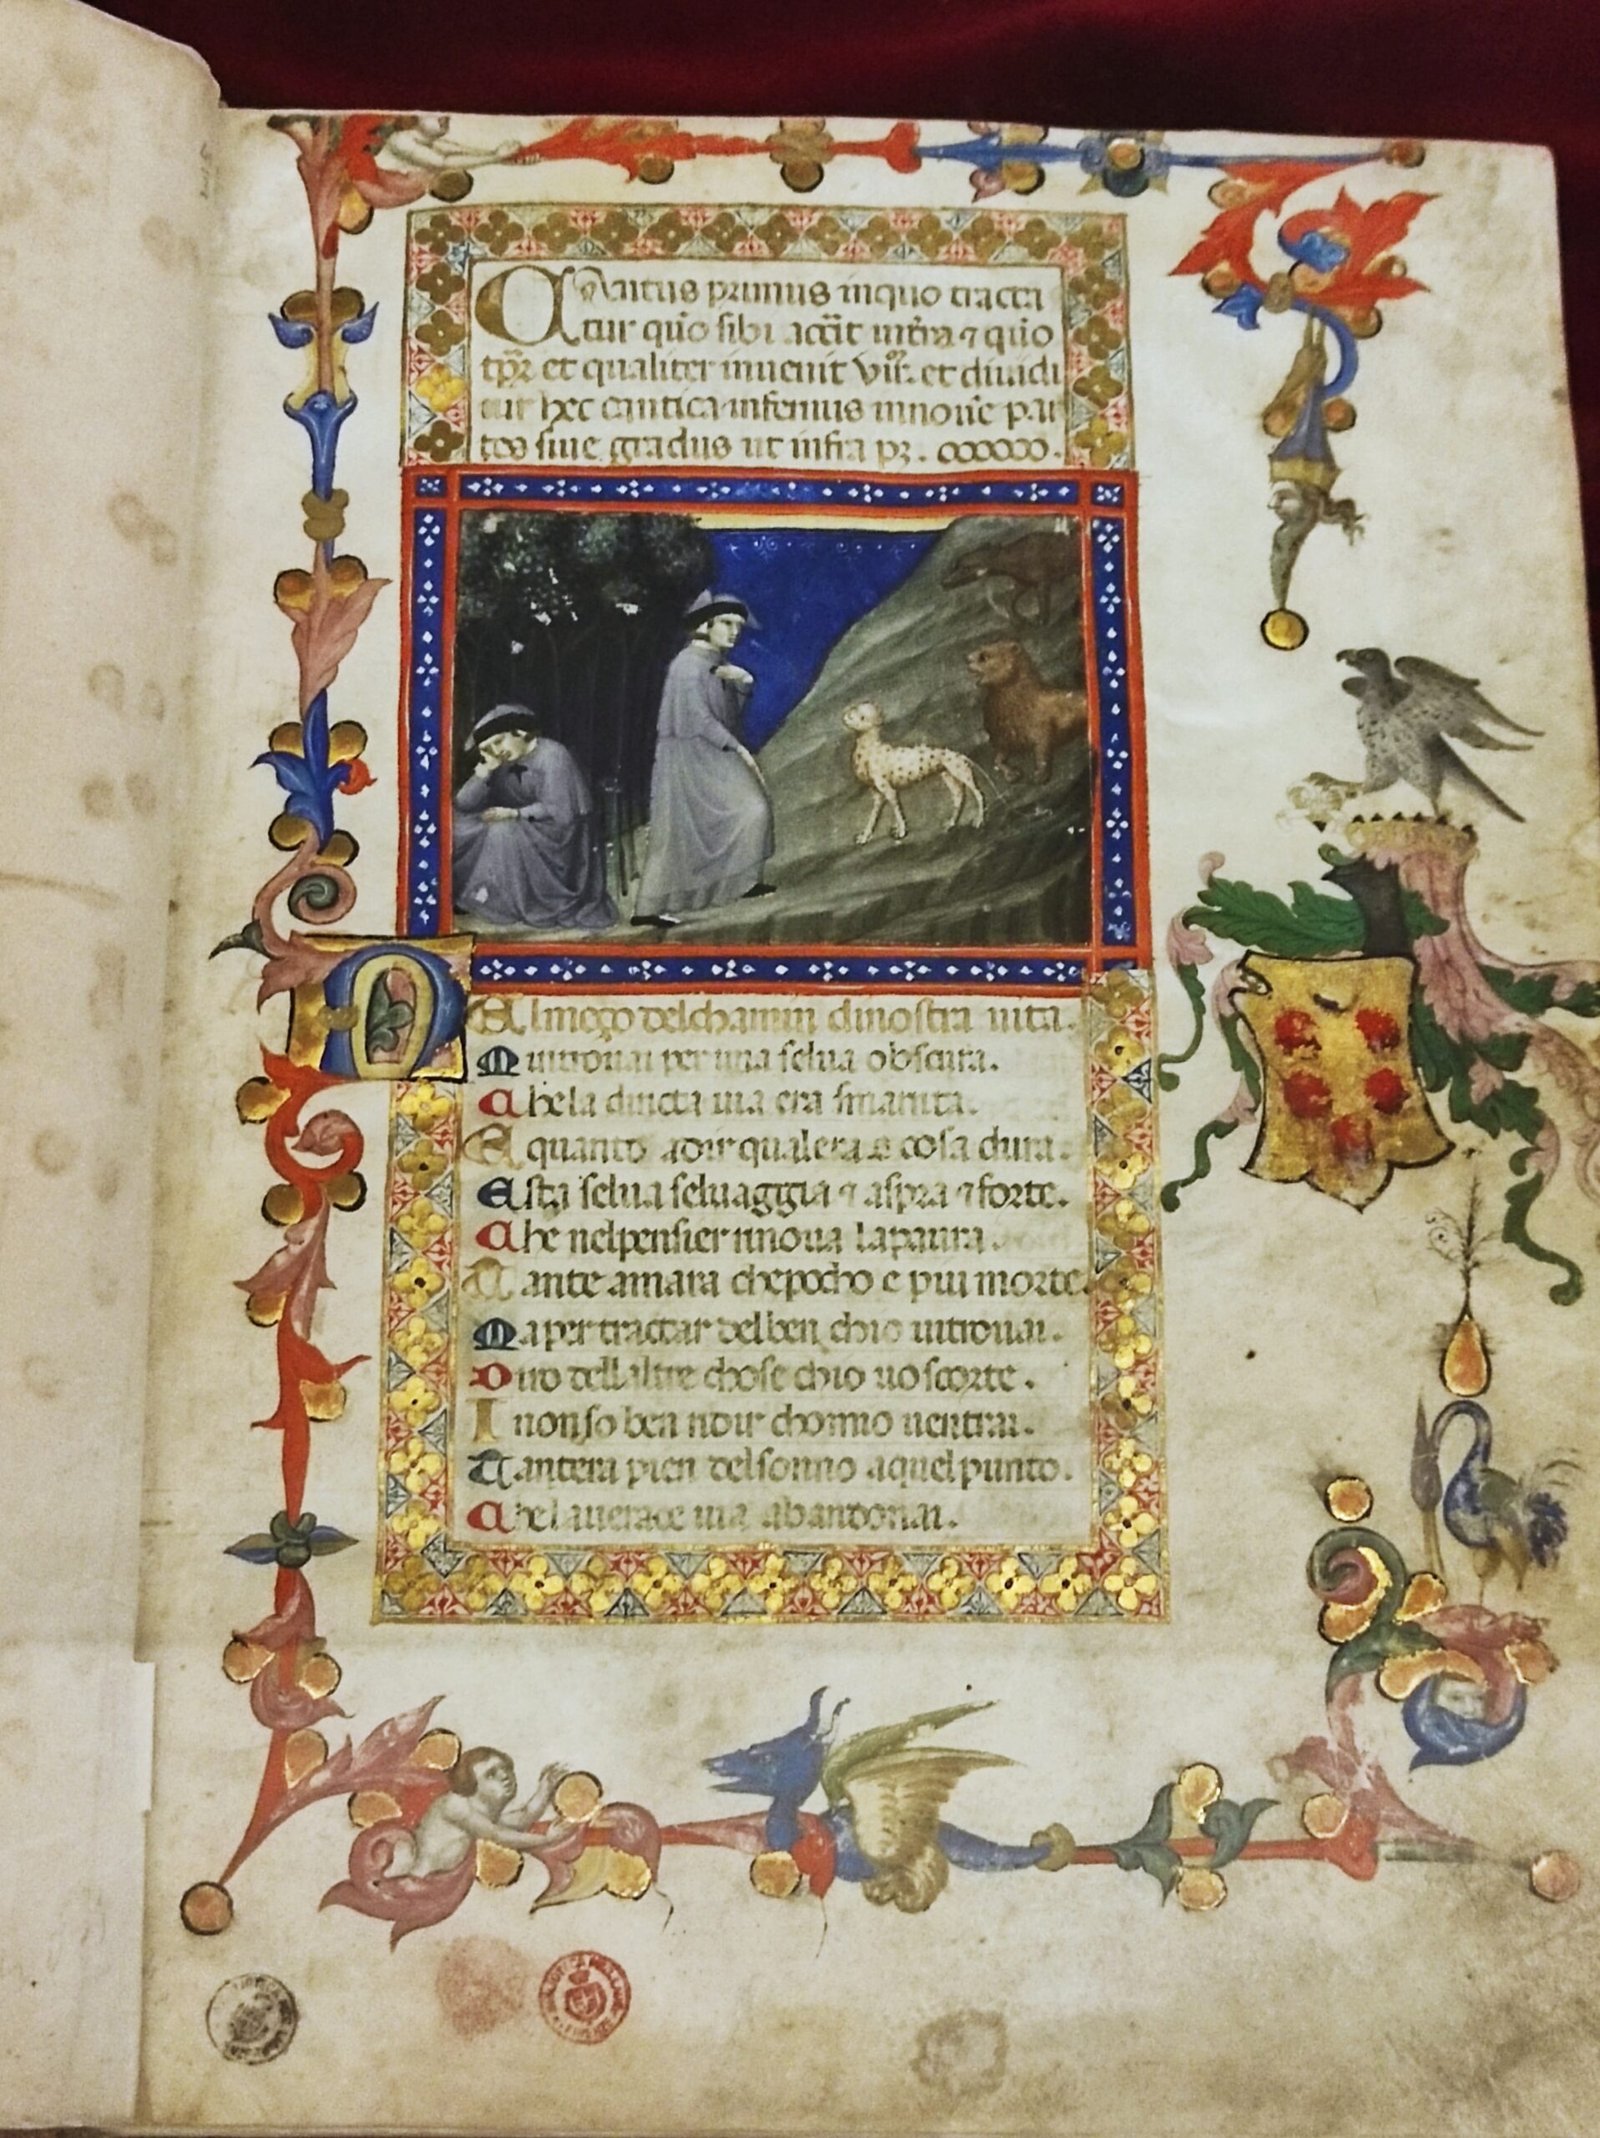 Cantus primus inquo tracta
tur quō sibi acciт infra ⁊ quō
et qualiter inuenit Vir. et diuidi
tur hec cantica infernus innoue par
tes siue gradus ut infra pz.
NEl mezo delchamin dinostra uita.
Mi ritrouai per una selua obscura.
Che la diricta uia era smarrita.
E quanto adir qualera e cosa dura.
Esta selua seluaggia ⁊ aspra ⁊ forte.
Che nelpensier rinoua lapaura.
Tante amara chepocho e piu morte.
Ma per tractar delben chio uitrouai.
Diro dellaltre chose chio uo scorte.
I non so ben ridir chomio uentrai.
Tantera pien delsonno aquel punto.
Chelauerace uia abandonai.